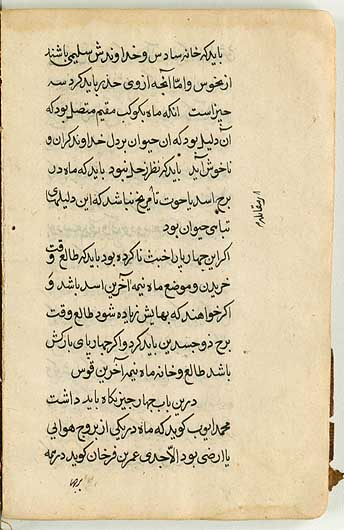 باید که خانه سادس و خداوندش سلیمی باشند
از نحوس و امّا آنچه از وی حذر باید کرد سه
چیز است آنکه ماه بکوکب مقیم متصل بود که
آن دلیل بود که ان حیوان بر دل خداوند کران و
ناخوش آید باید که نظر زحل نبود باید که ماه در
برج اسد یا حوت تا مریخ نباشد که این دلیلهای
تباهی حیوان بود
اکر این چهارپا راخت ناکرده بود باید که طالع وقت
خریدن و موضع ماه نیمه آخرین اسد باشد و
اکر خواهند که بهایش زیاده شود طالع وقت
برج ذوجسدین باید کرد و اکر چهارپای بارکش
باشد طالع و خانه ماه نیمه آخرین قوس
درین باب چهار چیز نکاه باید داشت
محمد ایوب کوید که ماه در یکی از بروج هوایی
یا ارضی بود الّا جدی عمر بن فرخان کوید در همه